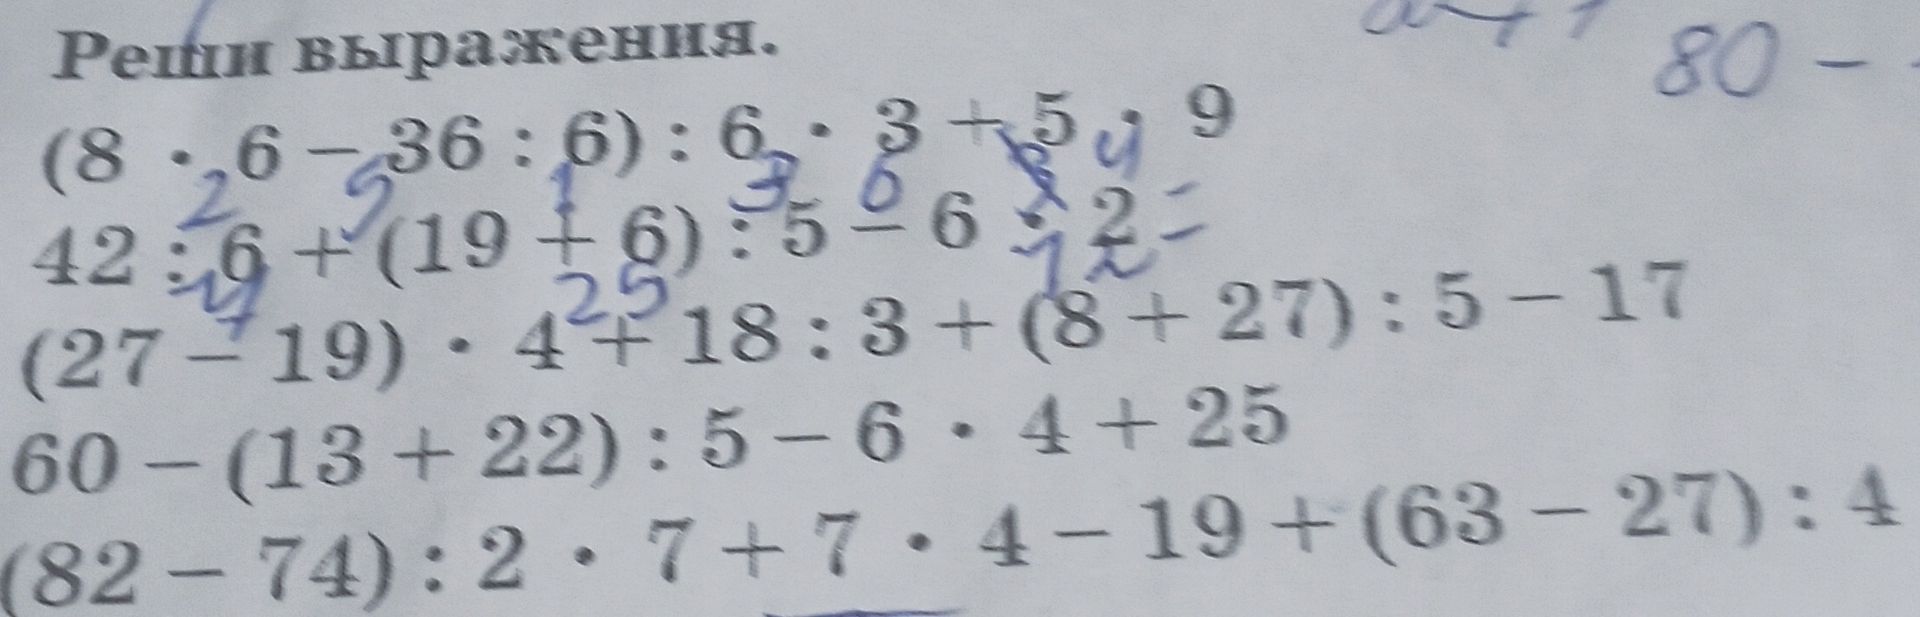 Реши выражения.
80 -
(8 · 6 − 36 : 6) : 6 · 3 + 5 · 9
2 5 1 3 6 4
42 : 6 + (19 + 6) : 5 − 6 · 2 =
7 25 12
(27 − 19) · 4 + 18 : 3 + (8 + 27) : 5 − 17
60 − (13 + 22) : 5 − 6 · 4 + 25
(82 − 74) : 2 · 7 + 7 · 4 − 19 + (63 − 27) : 4